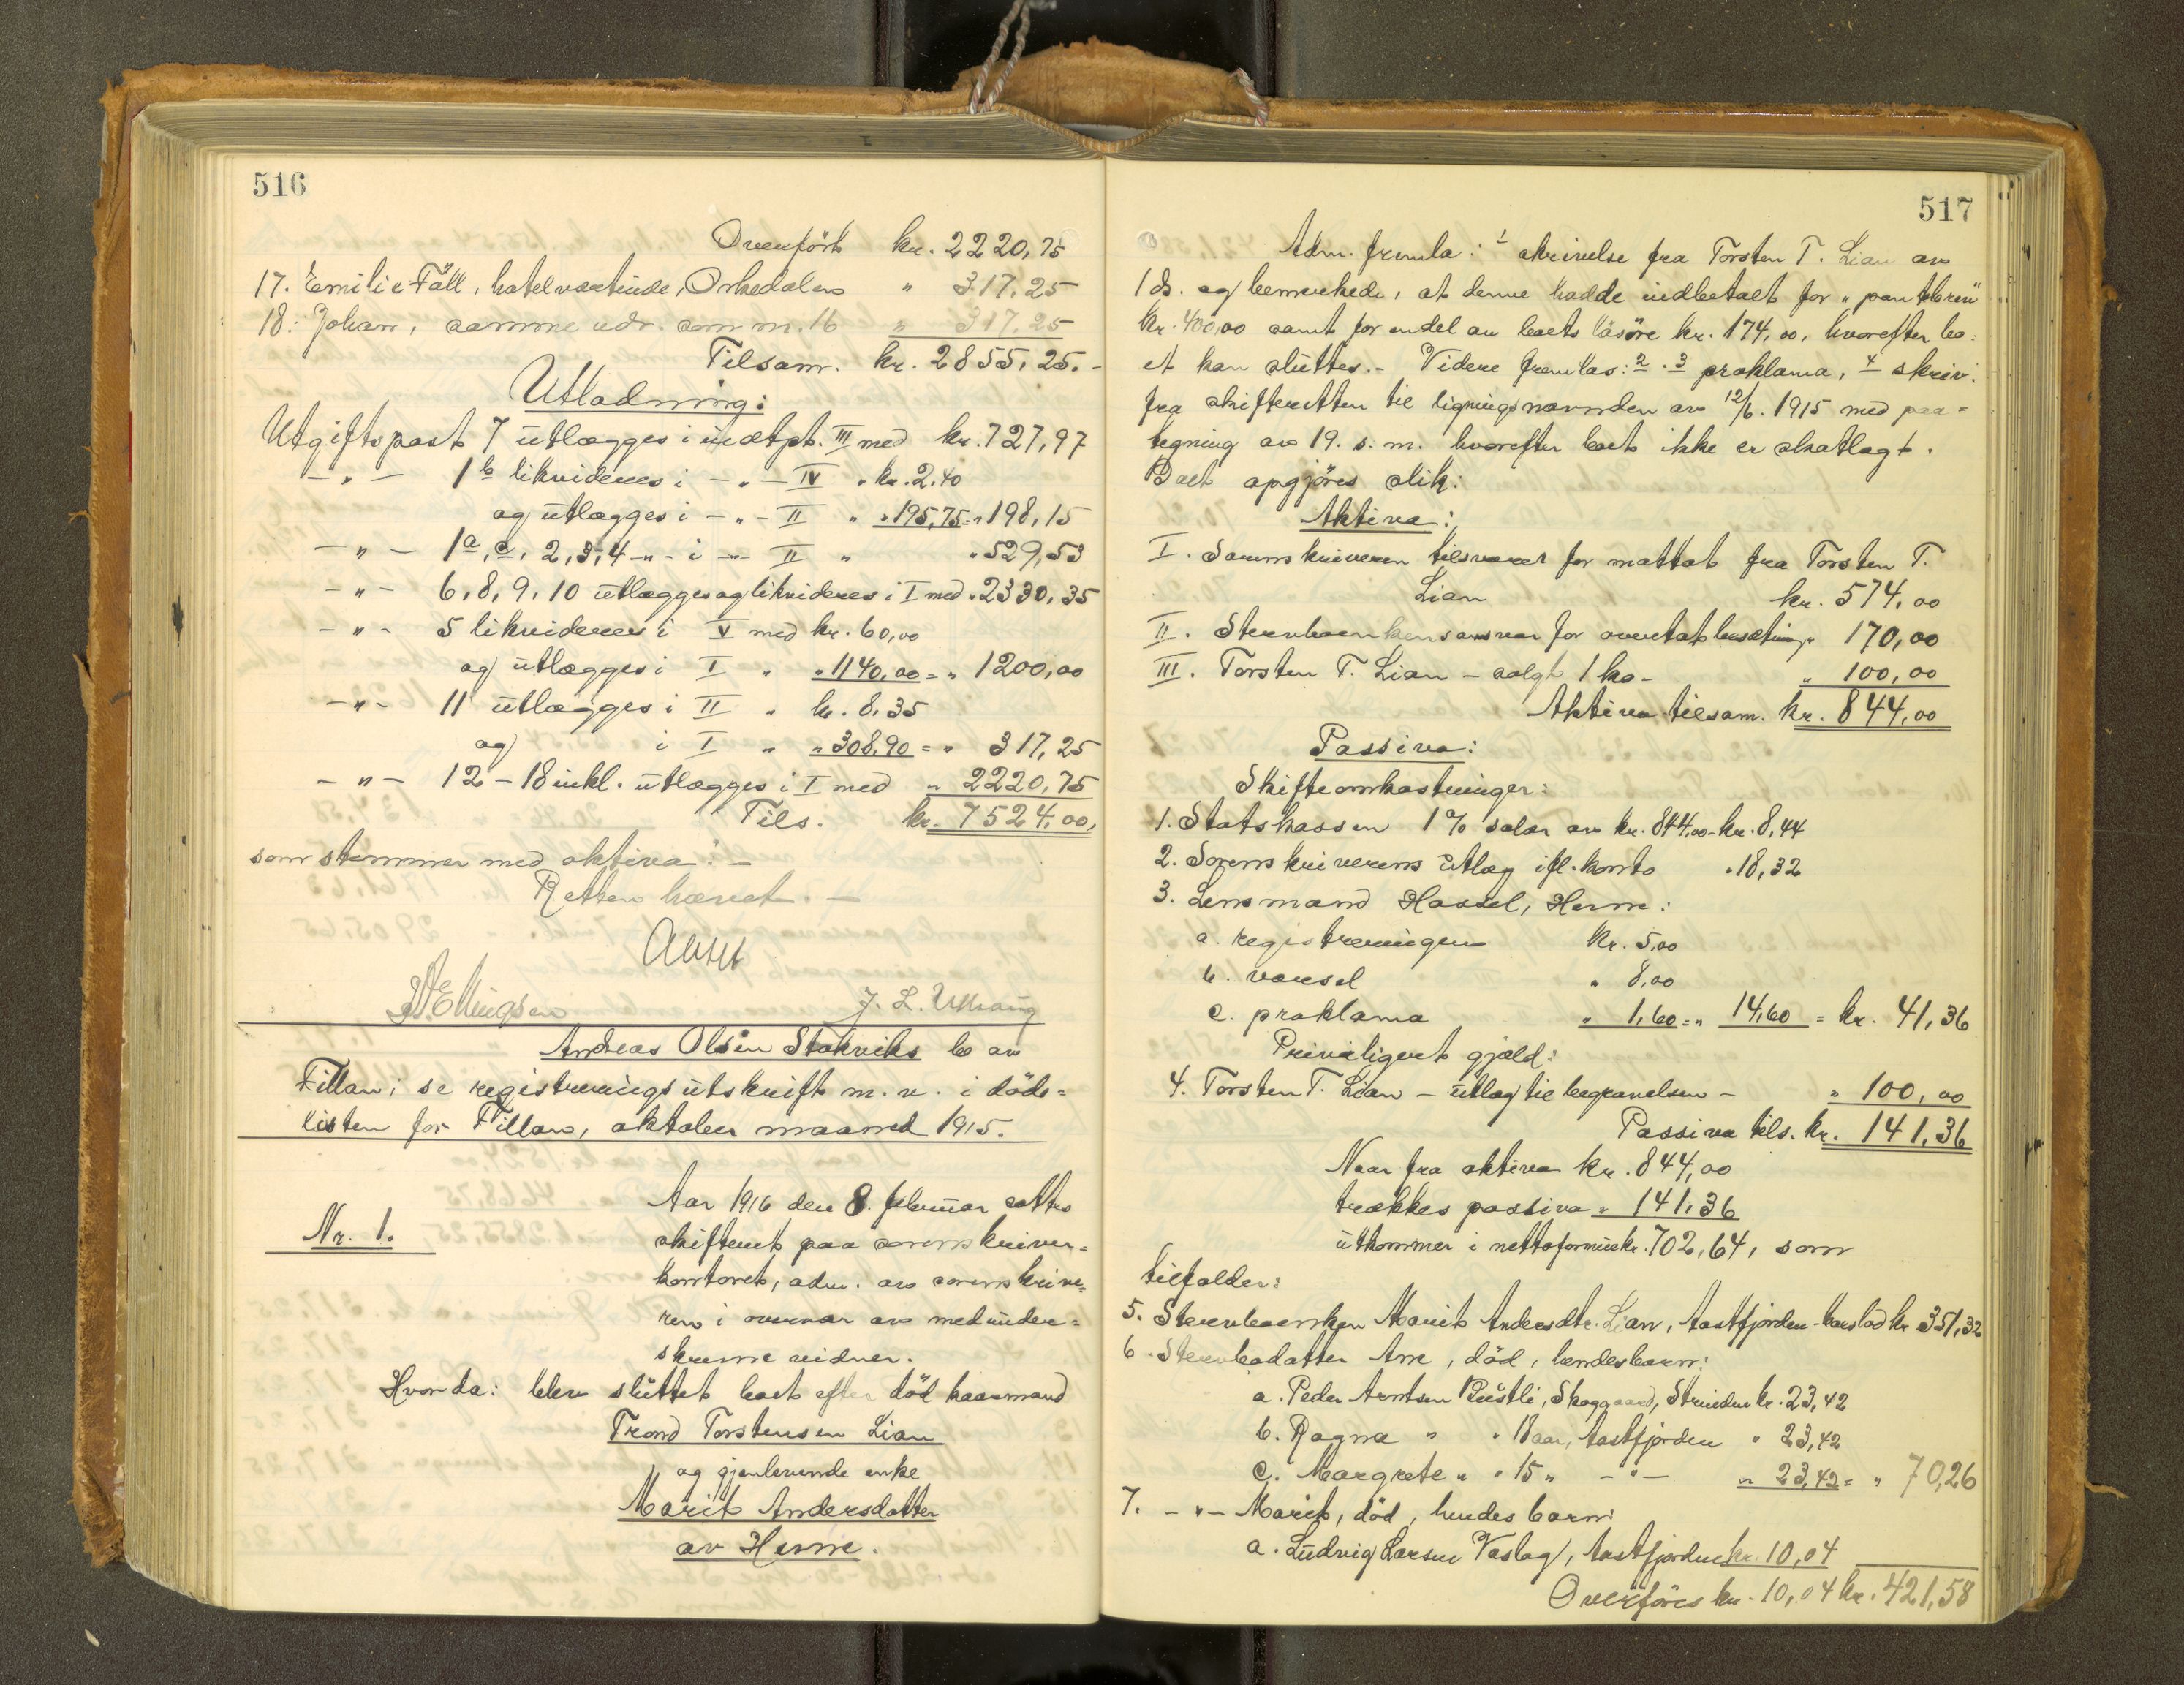 516
Overført kr. 2220,75
17. Emilie Fåll, hotelværtinde, Orkedalen " 317,25
18. Johan, samme adr. som nr. 16 " 317,25
Tilsam. kr. 2855,25.-
Utlodning:
Utgiftspost 7 utlægges i indtpt. III med kr. 727,97
-"- 1b likvideres i -"- IV " kr. 2,40
og utlægges i -"- II " " 195,75 = " 198,15
-"- 1a, c, 2, 3, 4 -"- i -"- II " " 529,53
-"- 6, 8, 9, 10 utlægges og likvideres i I med " 2330,35
-"- 5 likvideres i V med kr. 60,00
og utlægges i I " " 1140,00 = " 1200,00
-"- 11 utlægges i II " kr. 8,35
og i I " " 308,90 = " 317,25
-"- 12-18 inkl. utlægges i I med " 2220,75
Tils. kr. 7524,00,
som stemmer med aktiva. -
Retten hævet. -
Ellingsen J. L. Uthaug
Andreas Olsen Stokviks bo av
Fillan; se registreringsutskrift m. v. i døds=
listen for Fillan, oktober maaned 1915.
Nr. 1.
Aar 1916 den 8. februar sattes
skifteret paa sorenskriver=
kontoret, adm. av sorenskrive=
ren i overvær av medunder=
skrevne vidner.
Hvorda: blev sluttet boet efter død kaarmand
Trond Torstensen Lian
og gjenlevende enke
Marit Andersdatter
av Hevne.
517
Adm. fremla: 1 skrivelse fra Torsten T. Lian av
1 ds. og bemerkede, at denne hadde indbetalt for "pantebrev"
kr. 400,00 samt for endel av boets løsøre kr. 174,00, hvorefter bo=
et kan sluttes.- Videre fremlas: 2.3 proklama, 4 skriv.
fra skifteretten til ligningsnævnden av 12/6. 1915 med paa=
tegning av 19. s. m. hvorefter boet ikke er skatlagt.
Boet opgjøres slik:
Aktiva:
I. Sorenskriveren tilsvarer for mottat fra Torsten T.
Lian kr. 574,00
II. Stervboenkens ansvar for overtat besætning " 170,00
III. Torsten T. Lian - solgt 1 ko - " 100,00
Aktiva tilsam. kr. 844,00
Passiva:
Skifteomkostninger:
1. Statskassen 1% salær av kr. 844,00 - kr. 8,44
2. Sorenskriverens utlæg ifl. konto " 18,32
3. Lensmand Hassel, Hevne:
a. registreringen kr. 5,00
b. varsel " 8,00
c. proklama " 1,60 = " 14,60 = kr. 41,36
Priviligert gjæld:
4. Torsten T. Lian - utlæg til begravelsen - " 100,00
Passiva tils. kr. 141,36
Naar fra aktiva kr. 844,00
trækkes passiva " 141,36
utkommer i nettoformue kr. 702,64, som
tilfalder:
5. Stervboenken Marit Andersdtr. Lian, Aastfjorden - boeslod kr. 351,32
6. Stervbodatter Ane, død, hendes barn:
a. Peder Arntsen Rustli, Skoggaard, Strinden kr. 23,42
b. Ragna " " 18 aar, Aastfjorden " 23,42
c. Margrete " " 15 " -"- " 23,42 = " 70,26
7. -"- Marit, død, hendes barn:
a. Ludvig Larsen Vaslag, Aastfjorden kr. 10,04
Overføres kr. 10,04 kr. 421,58